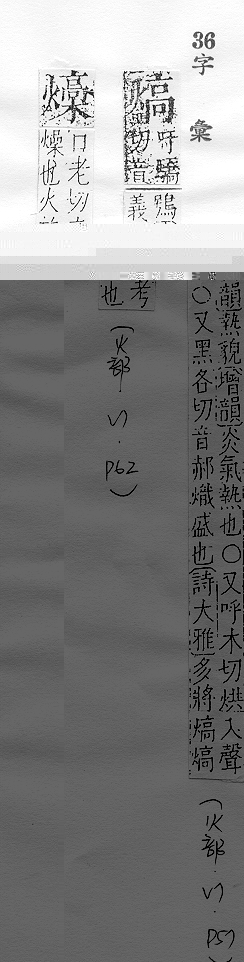 36字彙
熇
呼驕
切音
鴞
義
韻熱貌增韻炎氣熱也○又呼木切烘入聲
○又黑各切音郝熾盛也詩大雅多將熇熇
(火部·
P57
燺
口老切
燥也火
考
也
(火部·
P62)